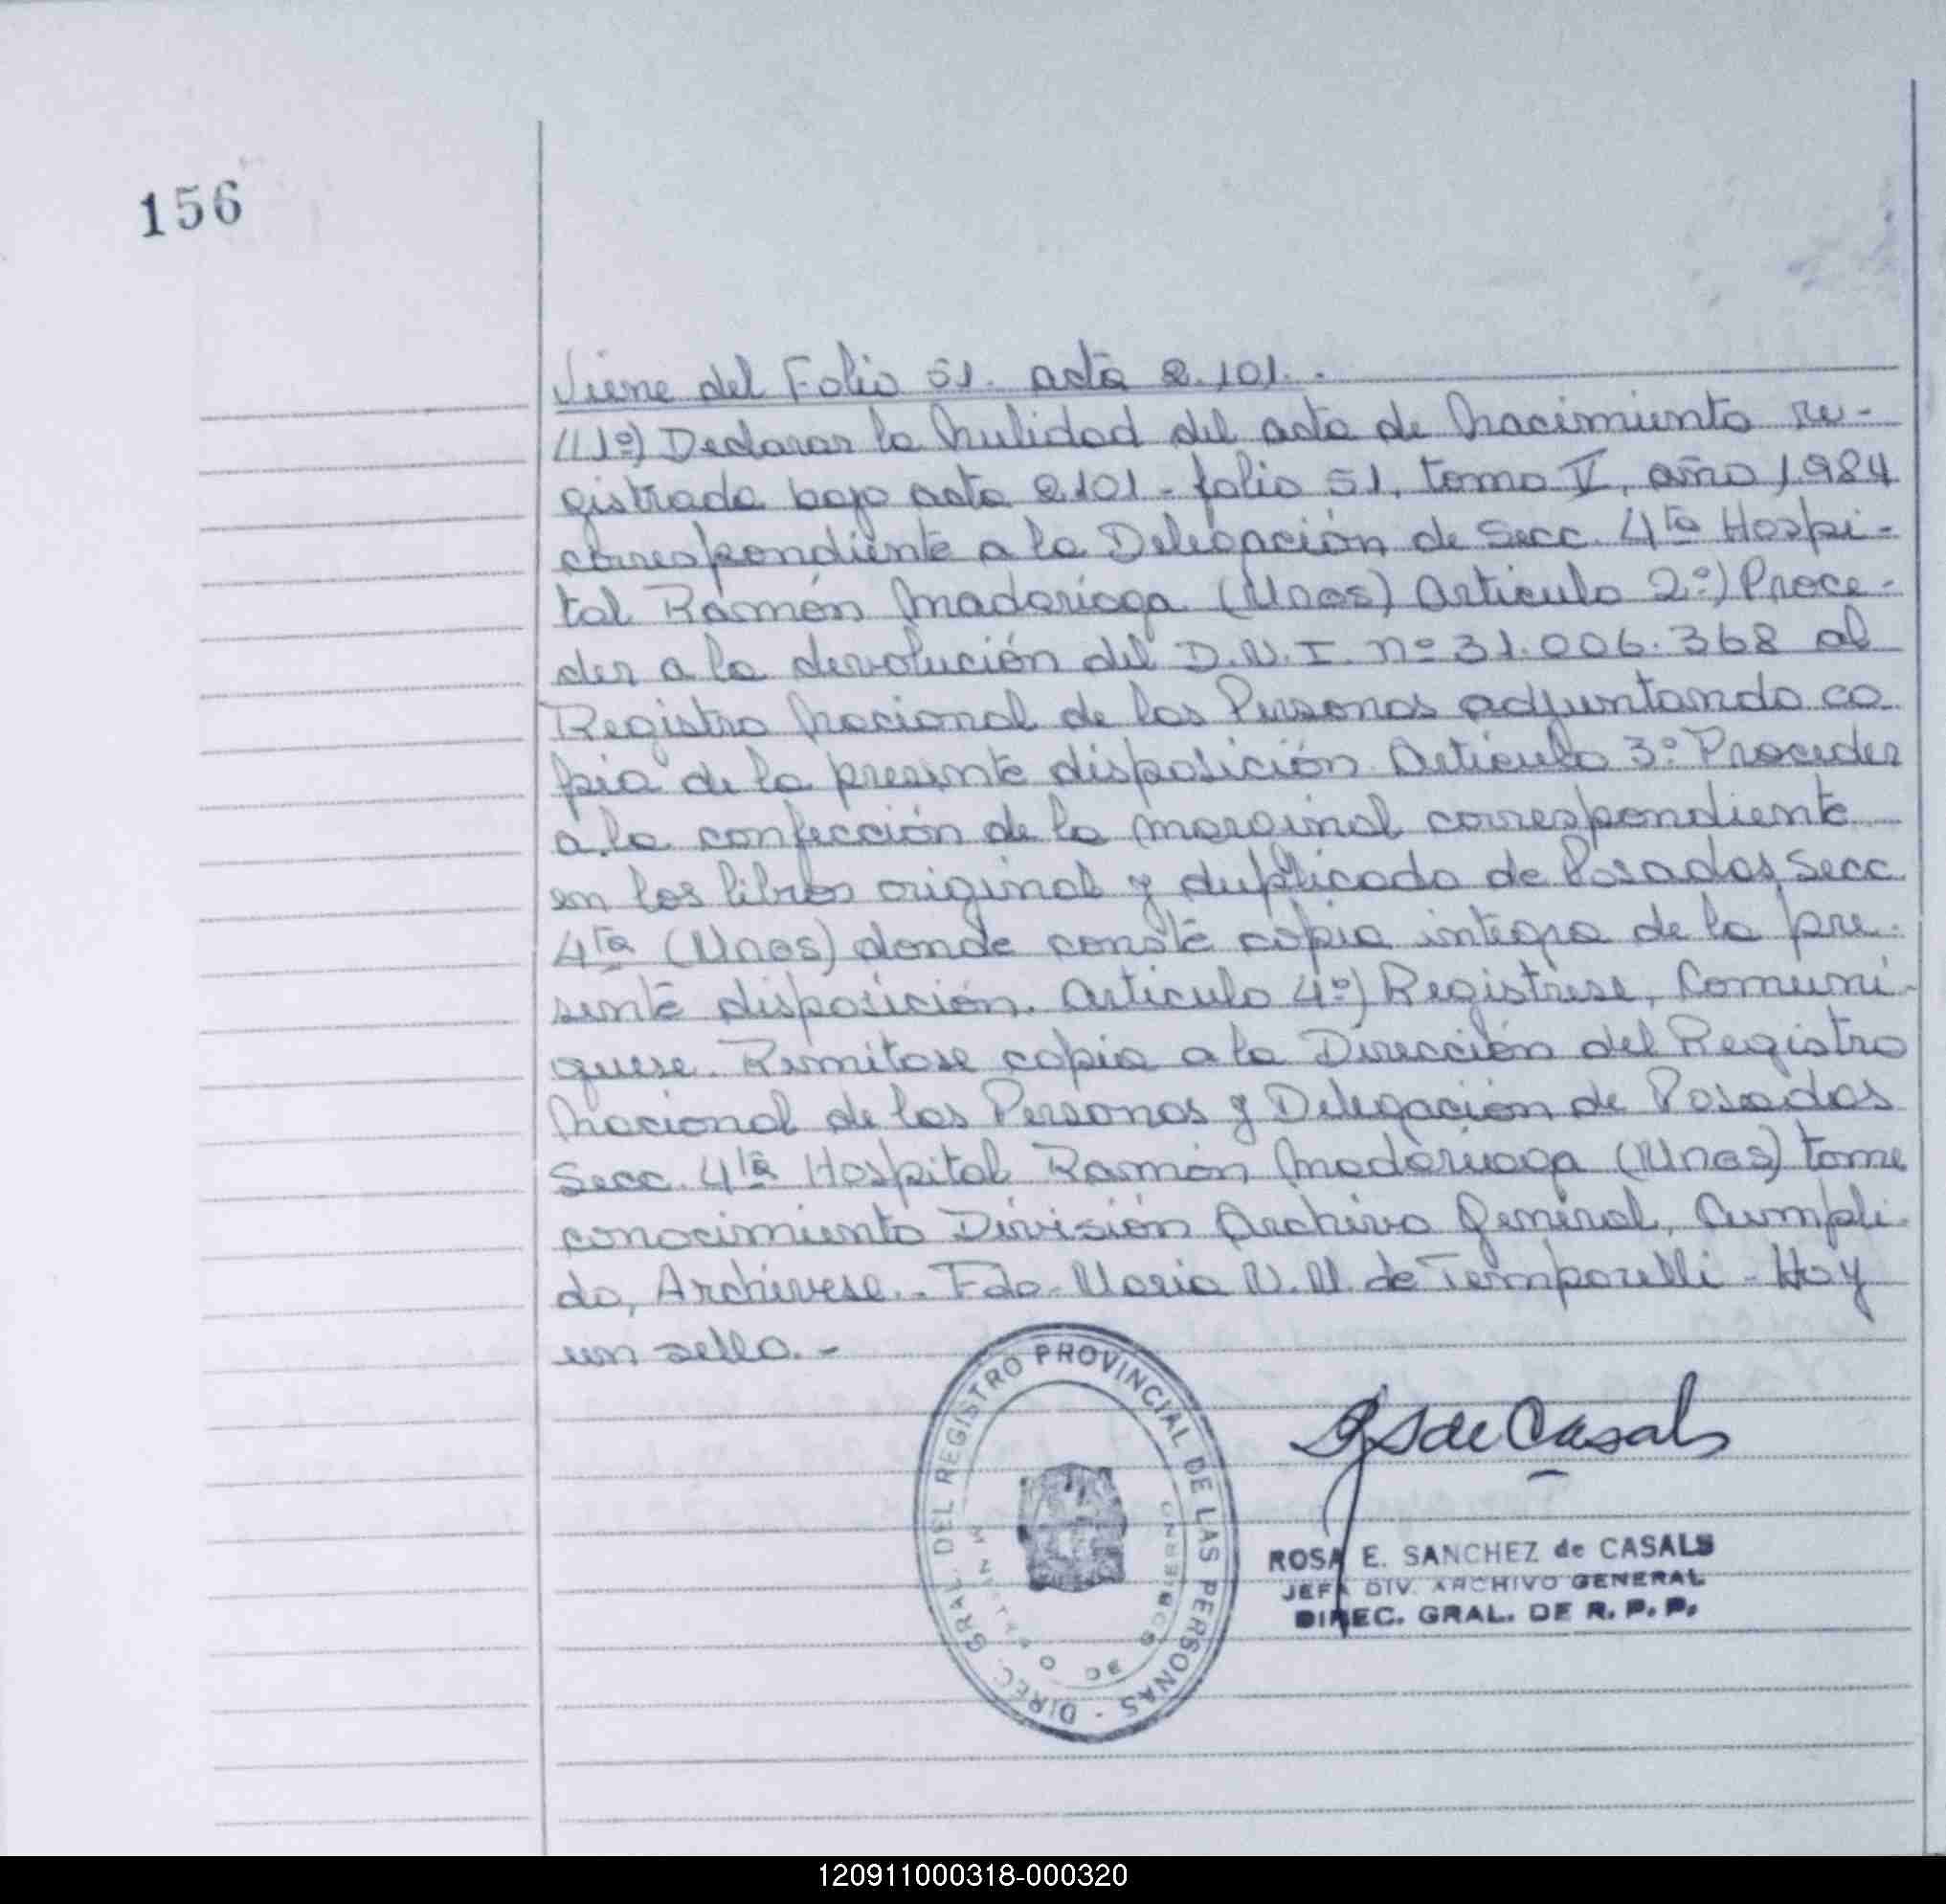 156
Viene del Folio 51. acta 2.101.-
(11º) Declarar la Nulidad del acta de Nacimiento re-
gistrada bajo acta 2101 - folio 51, tomo V, año 1.984
correspondiente a la Delegación de Secc. 4ta Hospi-
tal Ramón Madariaga (Mnes) Artículo 2º) Proce-
der a la devolución del D.N.I. nº 31.006.368 al
Registro Nacional de las Personas adjuntando co-
pia de la presente disposición. Artículo 3º Proceder
a la confección de la marginal correspondiente
en los libros original y duplicado de Posadas, Secc
4ta (Mnes) donde conste copia integra de la pre-
sente disposición. Artículo 4º) Registrese, Comuni-
quese. Remitase copia a la Dirección del Registro
Nacional de las Personas y Delegación de Posadas
Secc. 4ta Hospital Ramón Madariaga (Mnes) tome
conocimiento División Archivo General, Cumpli-
do, Archivese.- Fdo. Maria N. M. de Temporelli - Hay
un sello.-
DIREC. GRAL. DEL REGISTRO PROVINCIAL DE LAS PERSONAS -
de Casals
ROSA E. SANCHEZ de CASALS
JEFA DIV. ARCHIVO GENERAL
DIREC. GRAL. DE R. P. P.
120911000318-000320